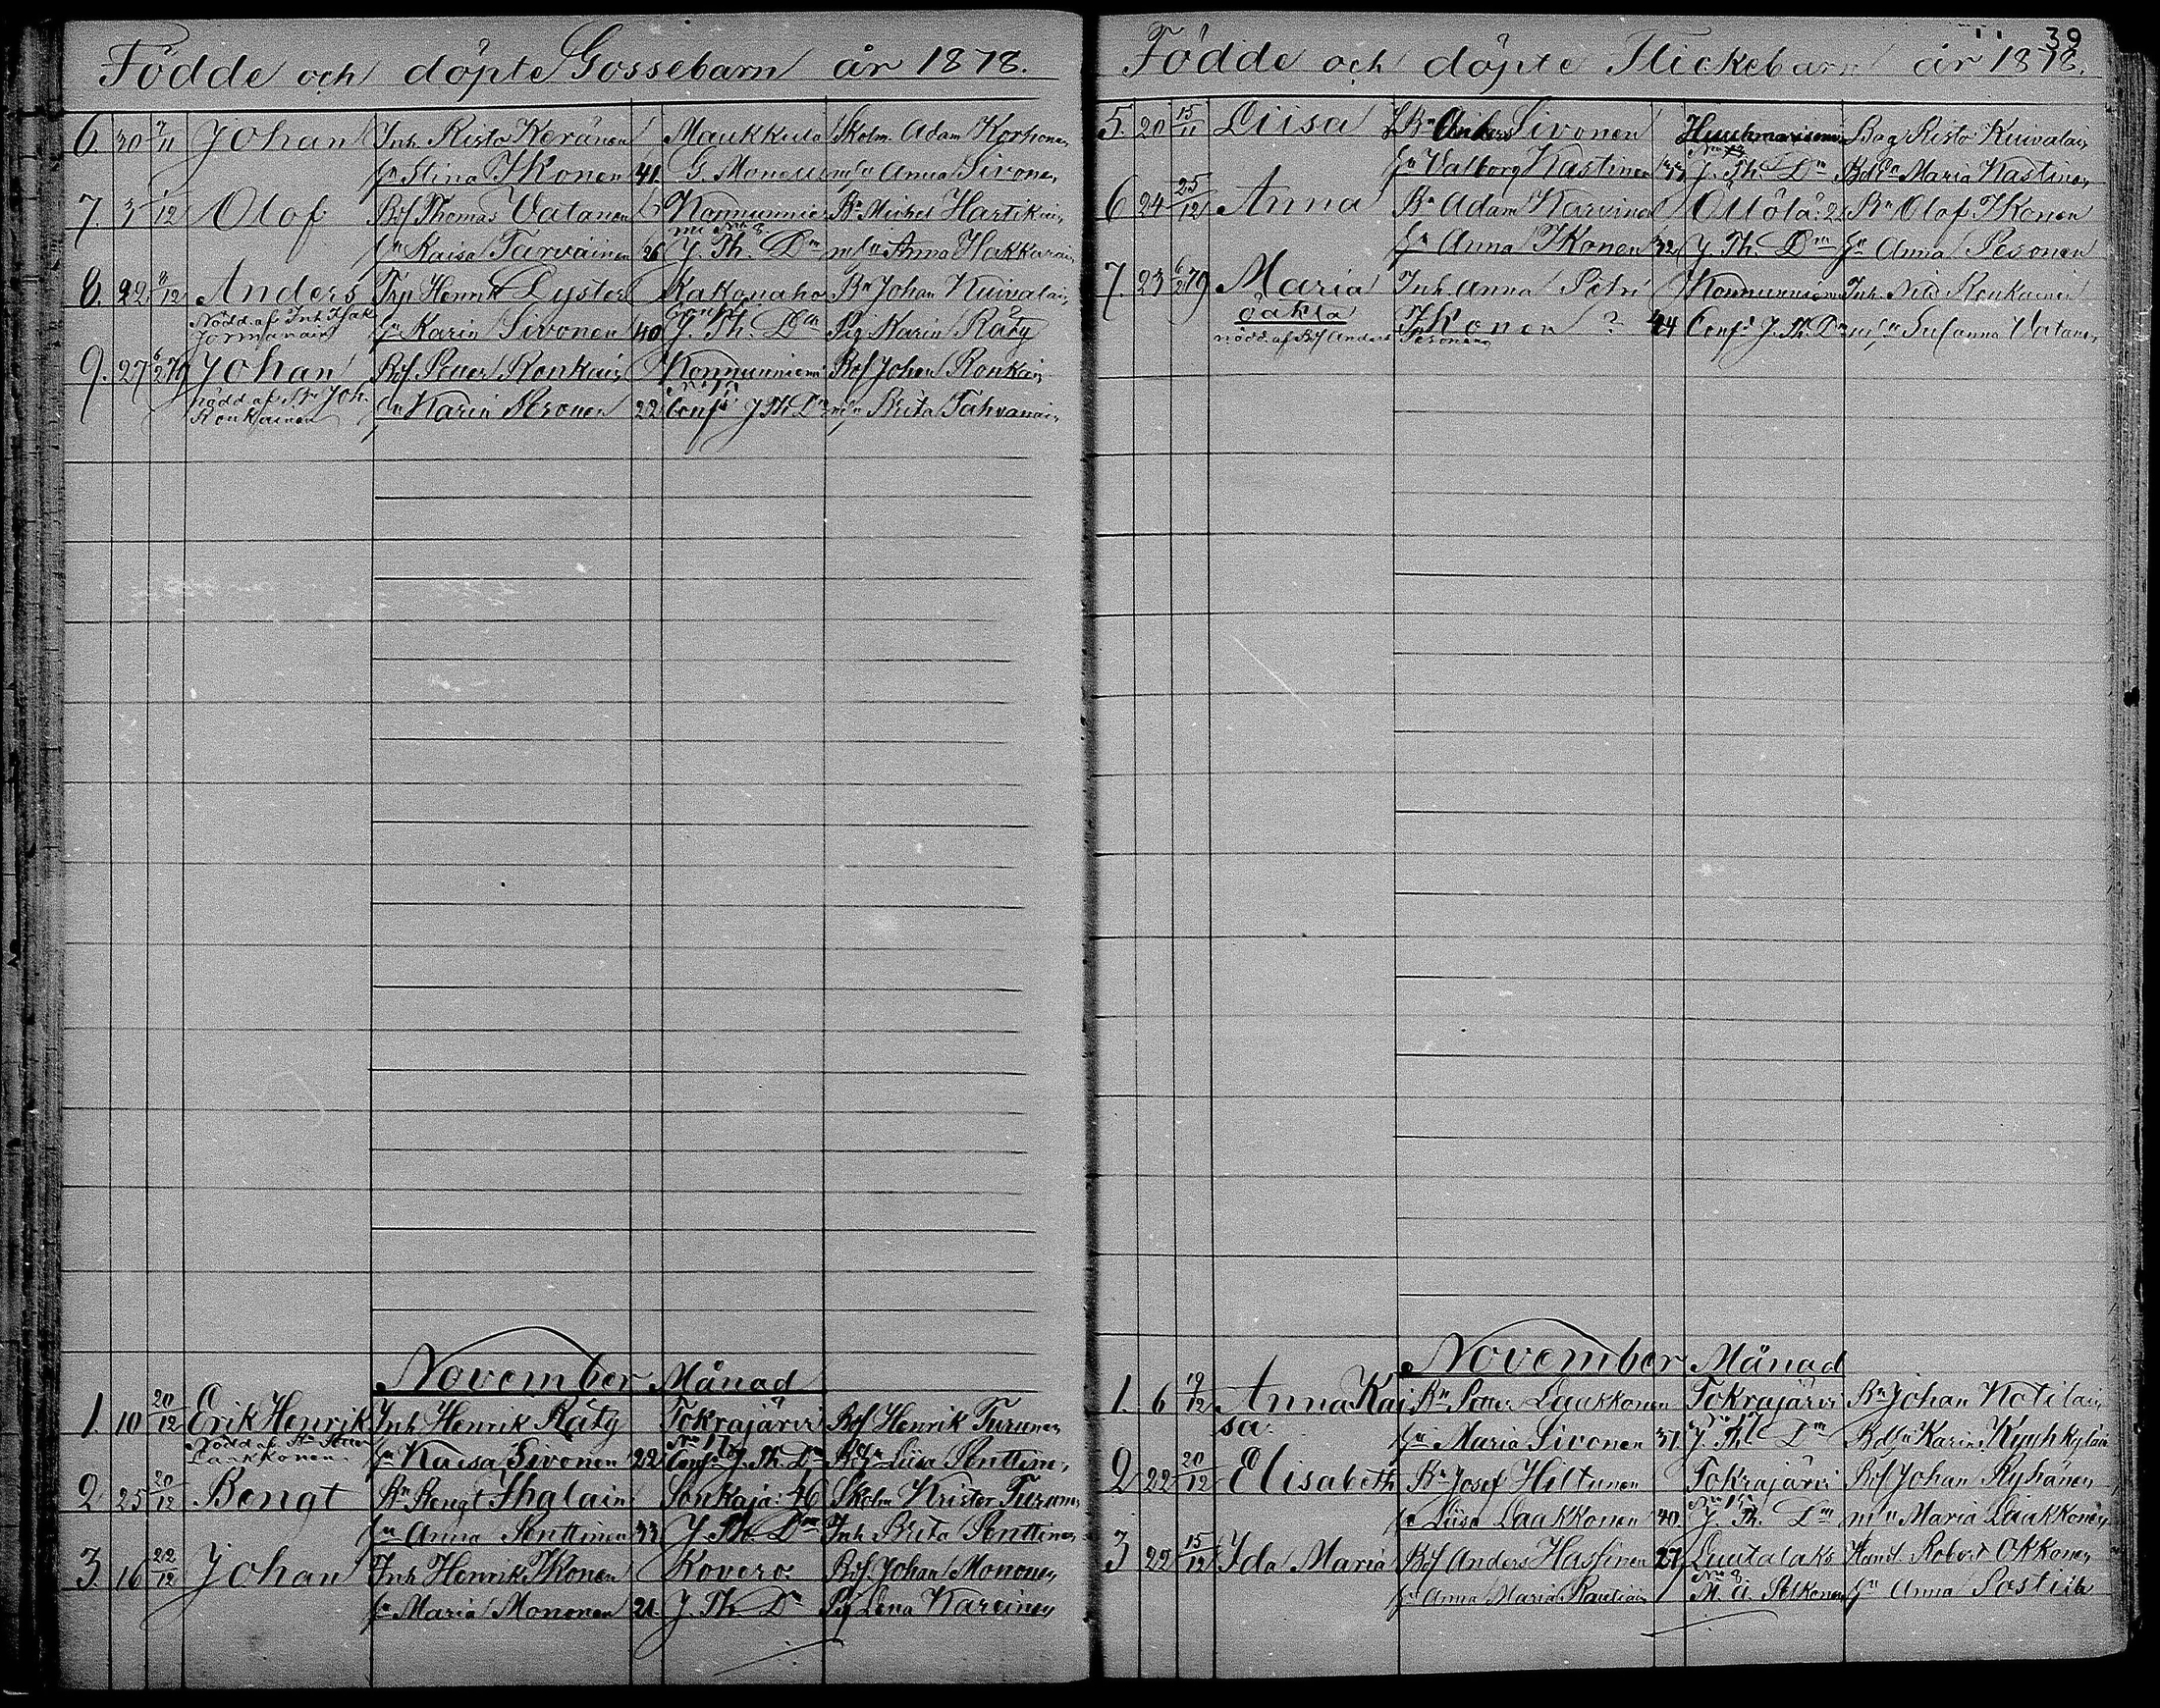 Födde och döpte Gossebarn år 1878.
6. 30 7/11 Johan Inh. Risto Keränen Maukkula Skolm. Adam Korhonen
hu Stina Ikonen 41. G. Monell mhu Anna Sivonen
7. 3 1/12 Olof Bof Thomas Vatanen Kommunnie Bn Michel Hartikain
mi No 8
hu Kaisa Tarvainen 26 J. Th. Dm mhu Anna Hakkarain
8. 22 8/12 Anders Trp Henrik Lyster Kakonaho Bn Johan Kuivalain
Nödd. af Inh. Isak
Jormanain hu Karin Sivonen 40 Conf. J. Th. Dm Pig Karin Räty
9. 27 6/2 79 Johan Bof Petter Ronkain Kommunniemi Bof Johan Ronkain
nödd af Bn Joh.
Ronkainen hu Karin Pesonen 22 Conf. J Th Dm mhu Brita Tahvanain
November Månad
1. 10 20/12 Erik Henrik Inh Henrik Räty Tokrajärvi Bof Henrik Turunen
Nödd af Bn Petter
Laakkonen. hu Kaisa Sivonen 22 No 17 Conf. J. Th Dm Bhu Liisa Penttine
2 25 20/12 Bengt Bn Bengt Ihalain Sonkaja: 46 Skolm Krister Turune
hu Anna Penttinen 33 J. Th. Dm Inh Brita Penttinen
3. 16 22/12 Johan Inh Henrik Ikonen Kovero: Bof. Johan Mononen
hu Maria Mononen 21. J. Th Dm Pig Lena Kareinen
39
Födde och döpte Flickebarn år 1878.
5. 20 15/11 Liisa Bn Anders Sivonen Huuhmarisenv Bag Risto Kuivalain
hu Valborg Kastinen 33 J. Th. Dm Bdhu Maria Kastinen
6 24 25/12 Anna Bn Adam Karvinen Öllölä: 2 Bn Olof Ikonen
hu Anna Ikonen 32 J. Th. Dm hu Anna Pesonen
7. 23 6/2 79 Maria Inh Anna Petri Kommunniemi Inh. Nils Ronkainen
oäkta Ikonen ? 44 Conf. J. Th. Dm mhu Susanna Vatanen
nödd. af Bf Anders Pesonen
November Månad
1. 6 19/12 Anna Kai Bn Petter Laakkonen Tokrajärvi Bn Johan Kotilain
sa. hu Maria Sivonen 37. No 17 J. Th. Dm Bdhu Karin Kyyhkyläin
2 22 20/12 Elisabeth Bn Josef Hiltunen Tokrajärvi Bof Johan Ryhänen
hu Liisa Laakkonen 40. No 15 J. Th. Dm mhu Maria Laakkonen
3 22 15/12 Ida Maria Bof Anders Hassinen 27 Luutalaks Handl. Robert Okkonen
hu Anna Maria Rautiain No 8 M. A. Pelkonen hu Anna Postila